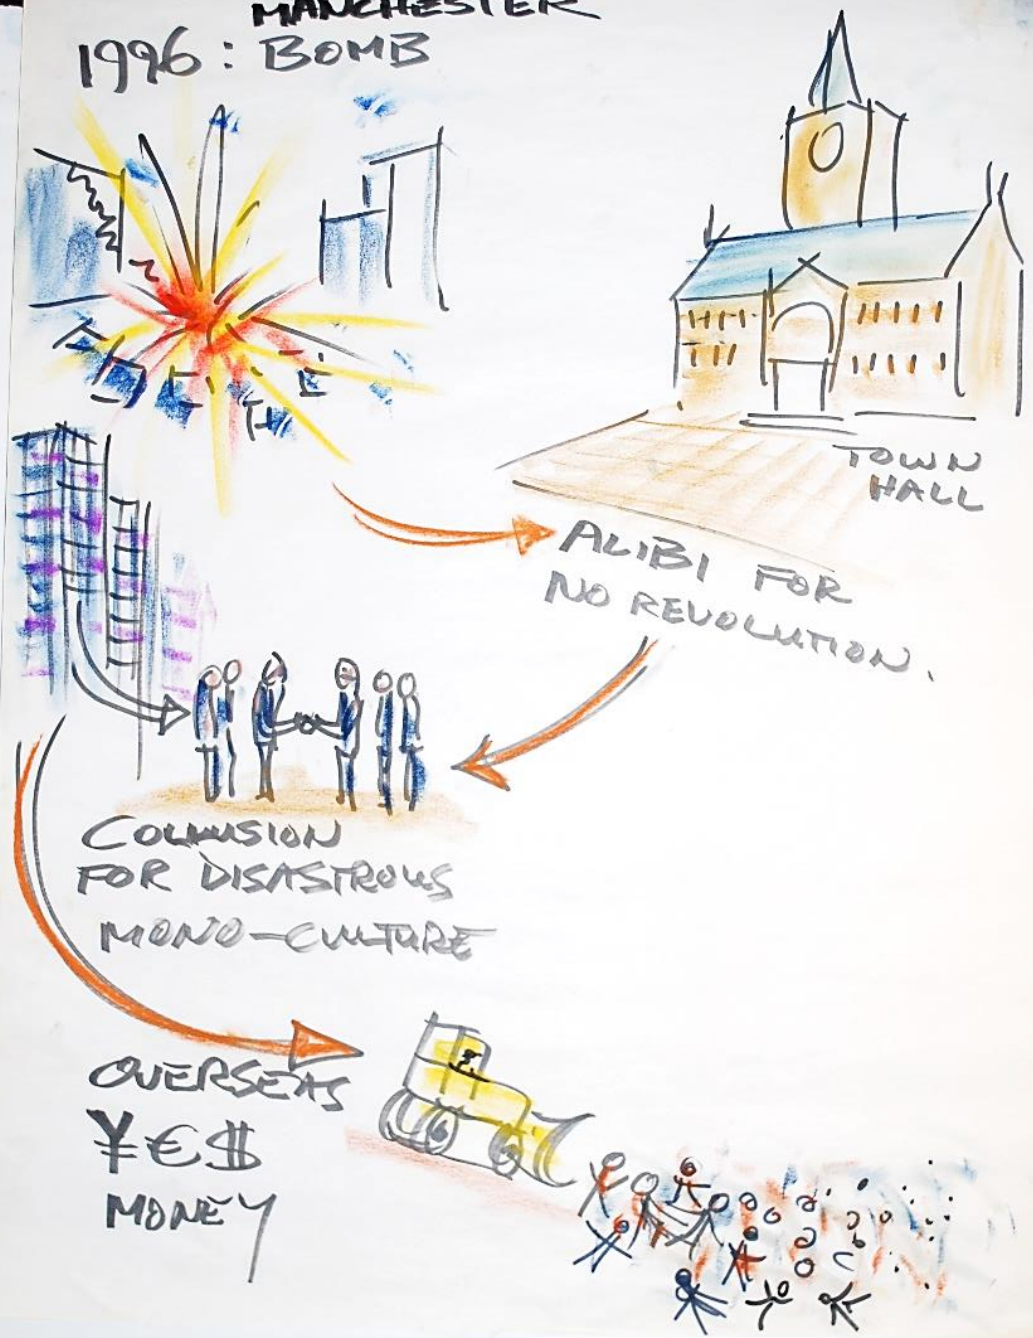 MANCHESTER
1996: BOMB
TOWN
HALL
ALIBI FOR
NO REVOLUTION.
COLLUSION
FOR DISASTROUS
MONO-CULTURE
OVERSEAS
¥€$
MONEY